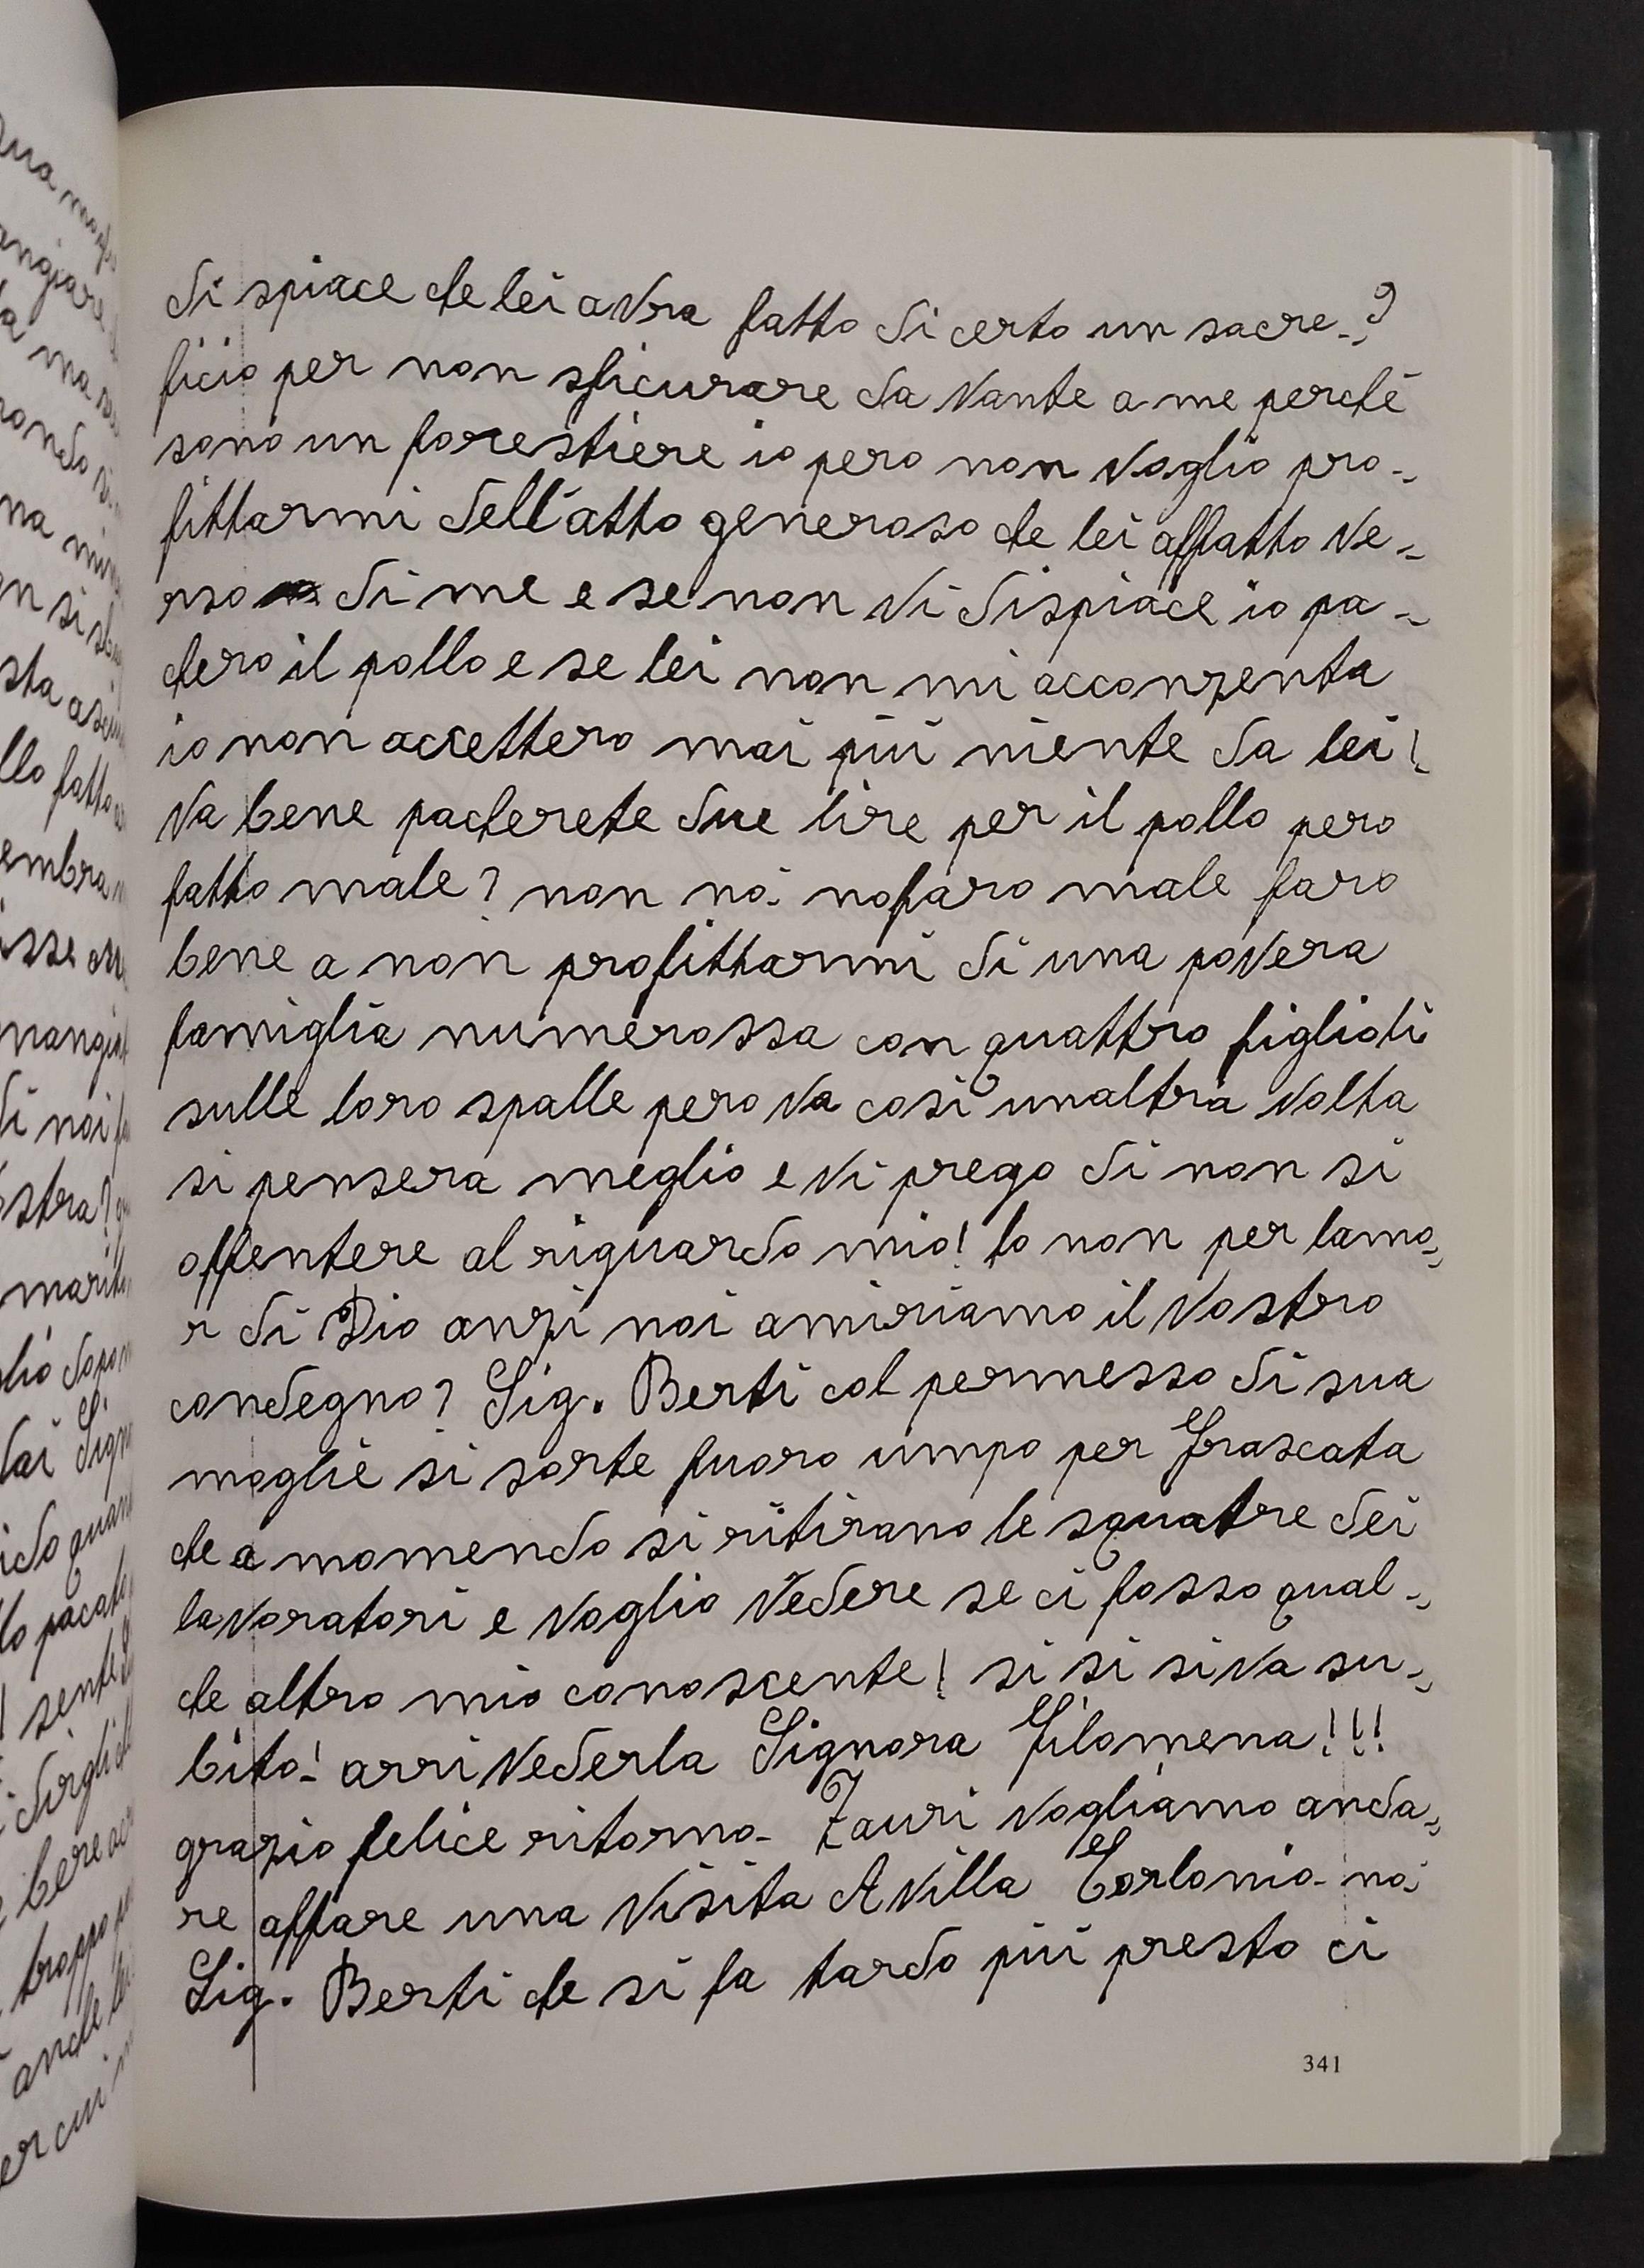 di spiace che lei avra fatto di certo un sacre-?
ficio per non sficurare davante a me perche
sono un forestiere io pero non voglio pro-
fittarmi dell'atto generoso che lei affatto ve-
rso di me e se non vi dispiace io pa-
chero il pollo e se lei non mi acconzenta
io non accettero mai più niente da lei!
va bene pacherete due lire per il pollo pero
fatto male? non nò. nofaro male faro
bene a non profittarmi di una povera
famiglia numerossa con quattro figlioli
sulle loro spalle pero va cosi unaltra volta
si pensera meglio e vi prego di non si
offentere al riguardo mio! Io non per lamo-
r di Dio anzi noi amiriamo il vostro
condegno? Sig. Berti col permesso di sua
moglie si sorte fuoro umpo per Frascata
che a momendo si ritirano le squatre dei
lavoratori e voglio vedere se ci fosso qual-
che altro mio conoscente! si si si va su-
bito! arrivederla Signora Filomena!!!
grazio felice ritorno- Zauri vogliamo anda-
re affare una visita A villa Torlonia- nò
Sig. Berti che si fa tardo più presto ci
341